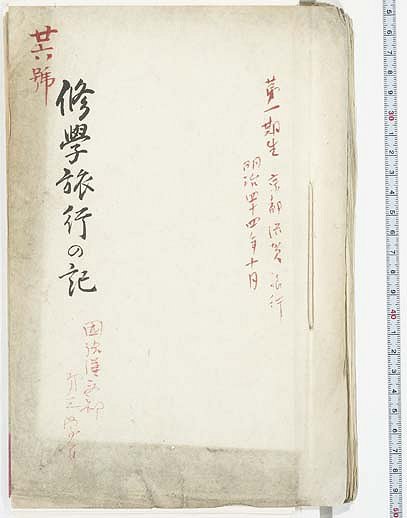 第一期生 京都滋賀旅行
明治四十四年十月
廿六號
修學旅行の記
國語漢文部